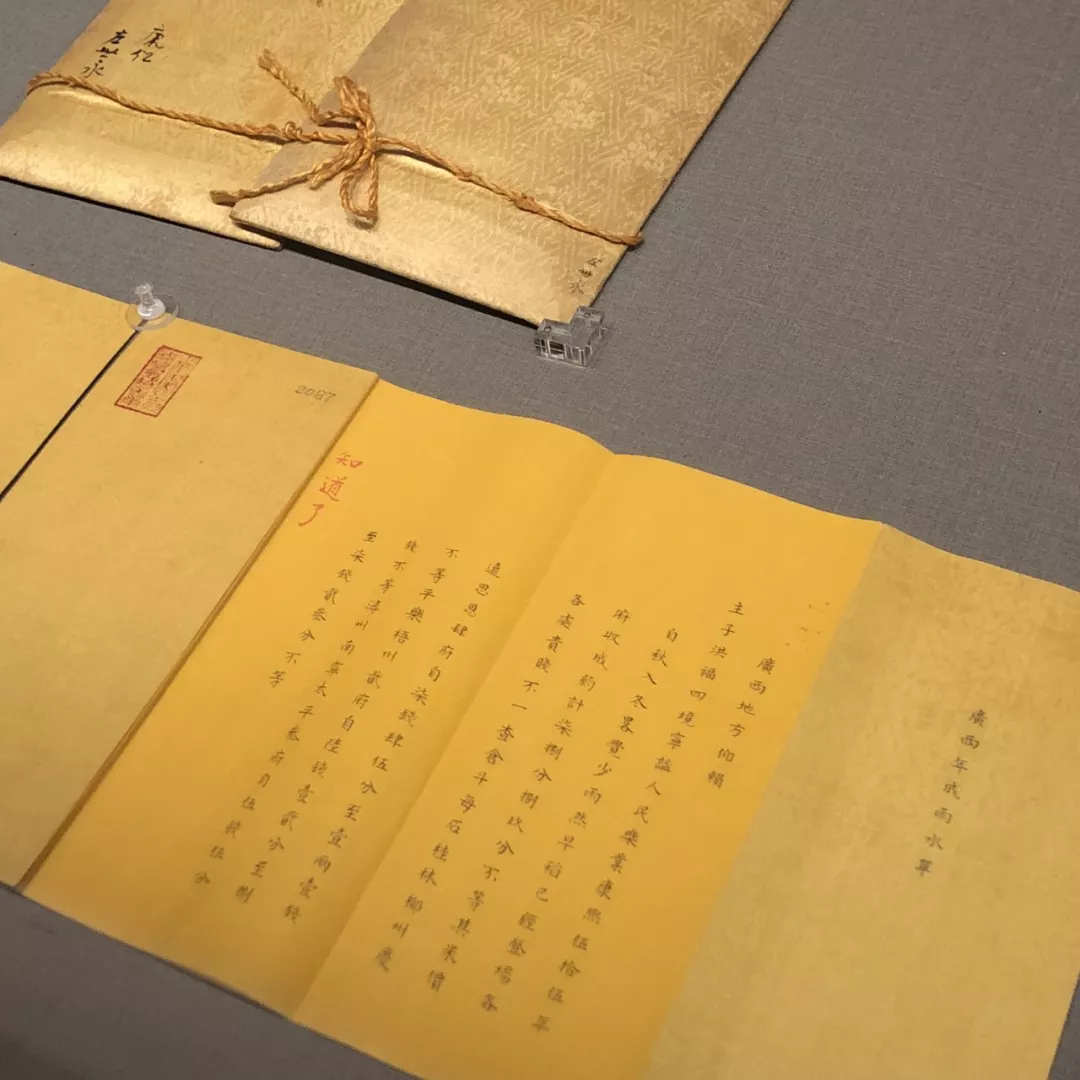 左世永
左世永
廣西年成雨水單
廣西地方仰賴
主子洪福四境寧謐人民樂業康熙伍拾伍年
自秋入冬畧覺少雨然早稻已經登場各
府收成約計柒捌分捌玖分不等其米價
各處貴賤不一查倉斗每石桂林柳州慶
遠思恩肆府自柒錢肆伍分至壹兩壹錢
不等平樂梧州貳府自陸錢壹貳分至捌
錢不等潯州南寧太平叁府自伍錢伍分
至柒錢貳叁分不等
知道了
2087